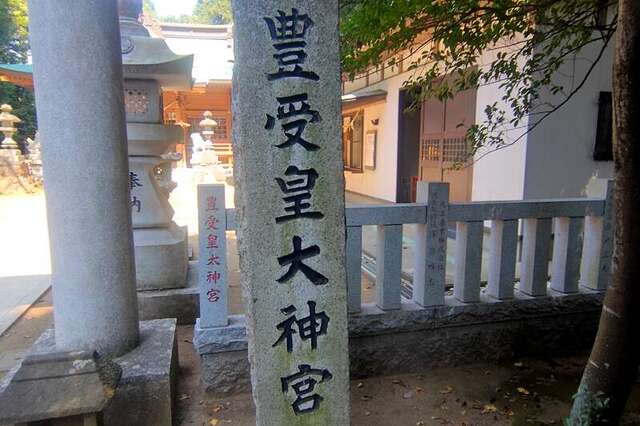 豊受皇大神宮
豊受皇太神宮
奉納